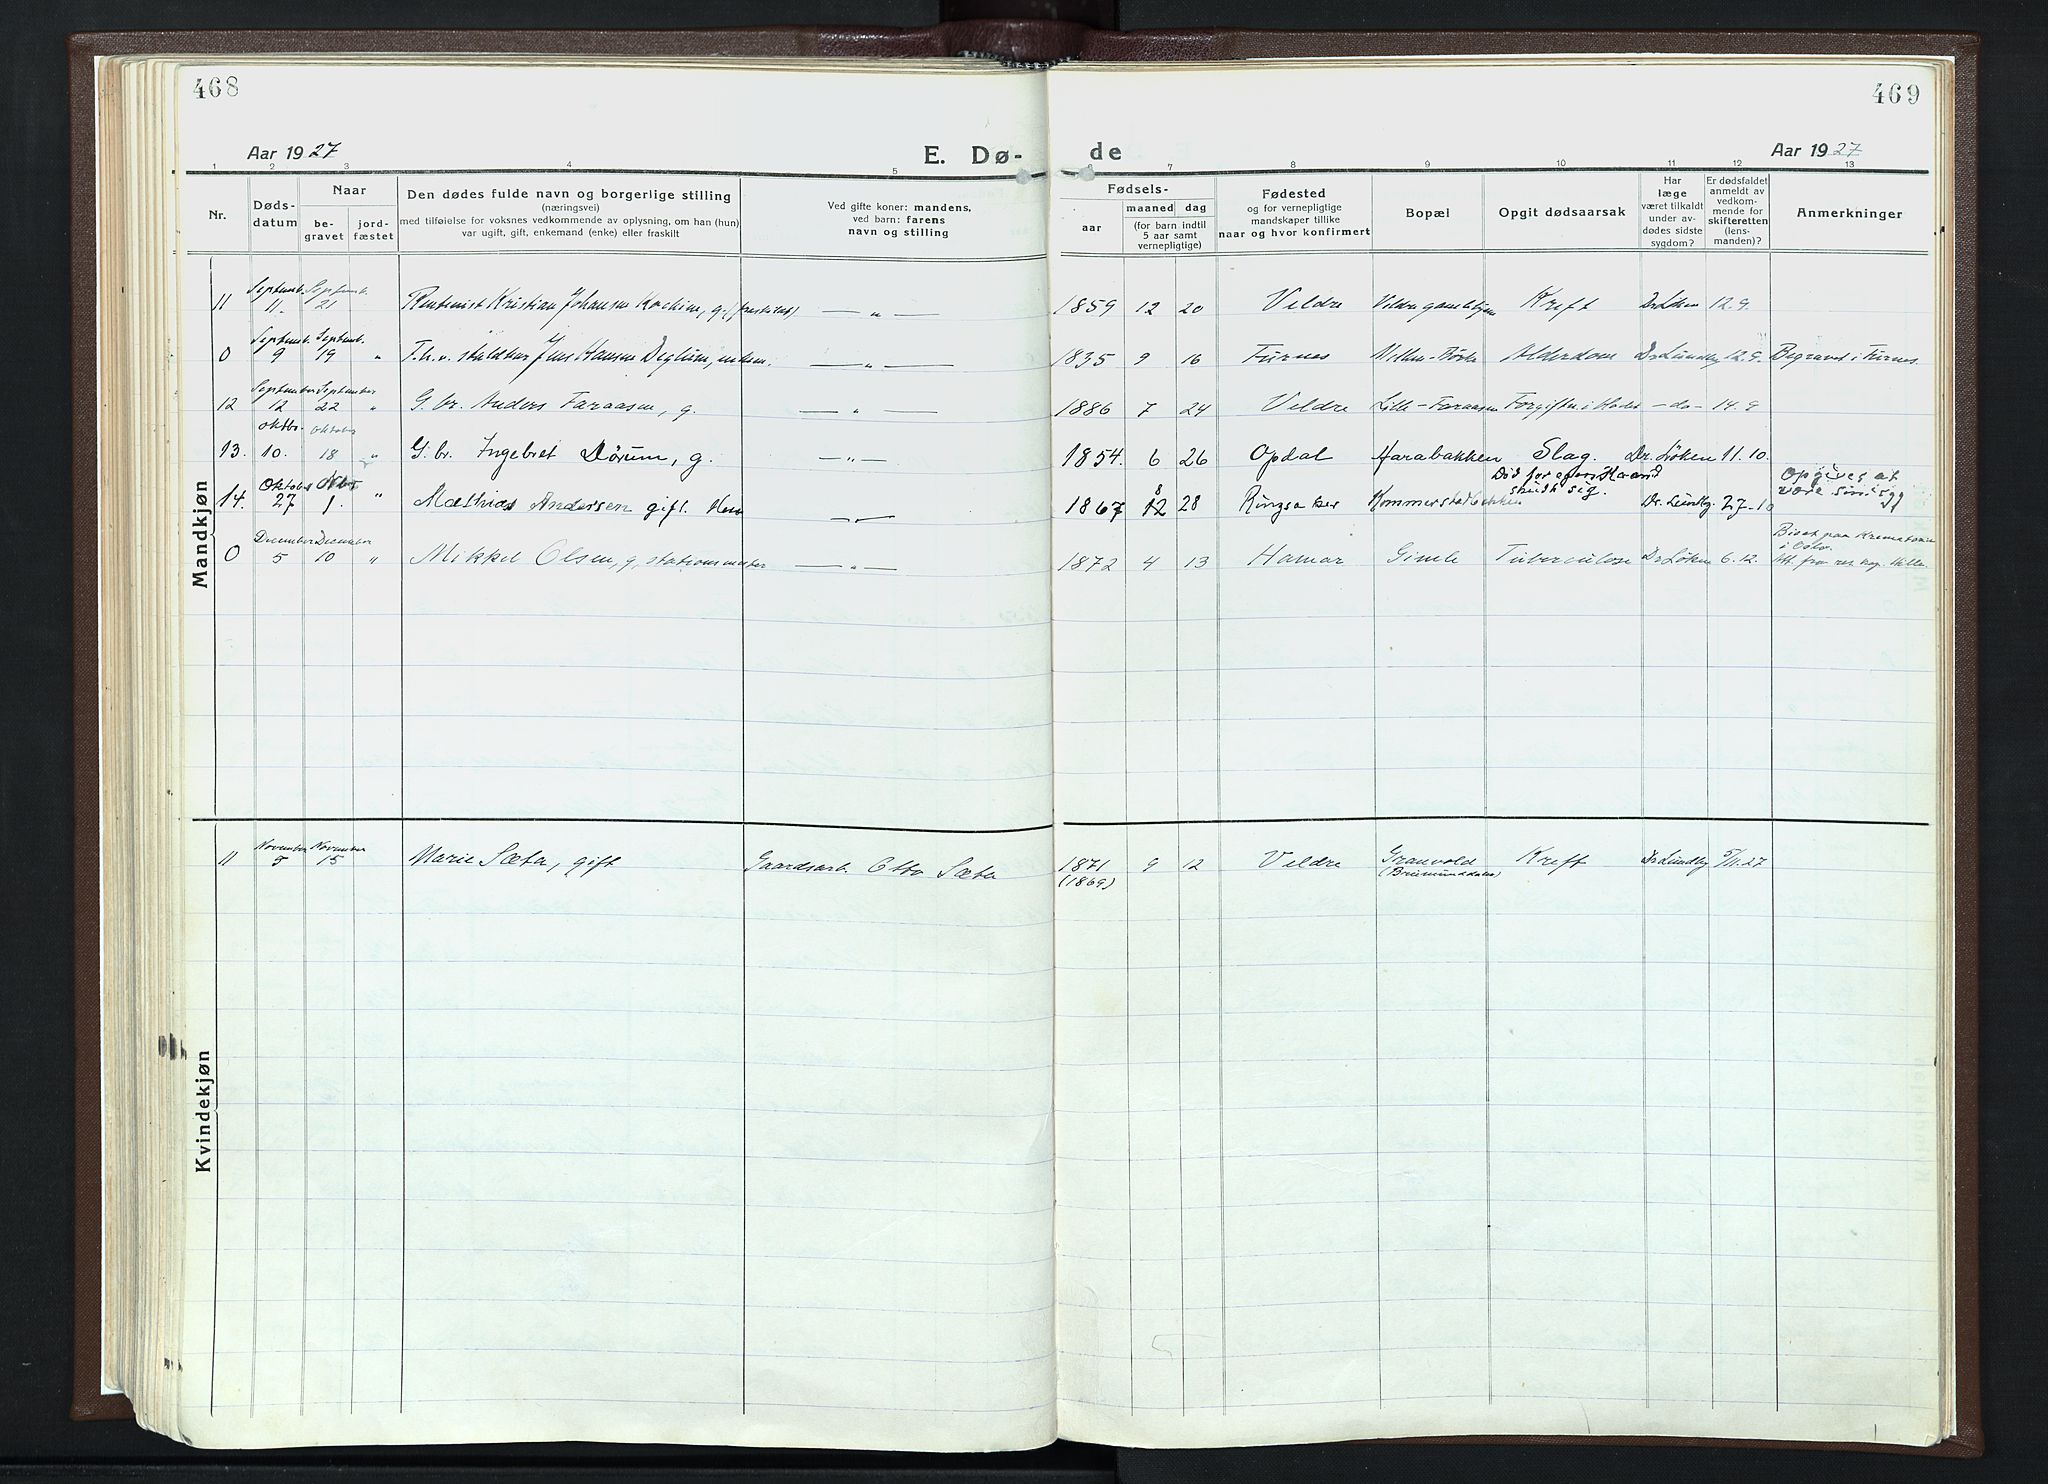 468
469
Aar 1927
E. Dø-
de
Aar 1927
1 2 3 4 5 6 7 8 9 10 11 12 13
Nr.
Døds-
datum
Naar
be-
gravet
jord-
fæstet
Den dødes fulde navn og borgerlige stilling
(næringsvei)
med tilføielse for voksnes vedkommende av oplysning, om han (hun)
var ugift, gift, enkemand (enke) eller fraskilt
Ved gifte koner: mandens,
ved barn: farens
navn og stilling
Fødsels-
aar
maaned
dag
(for barn indtil
5 aar samt
vernepligtige)
Fødested
og for vernepligtige
mandskaper tillike
naar og hvor konfirmert
Bopæl
Opgit dødsaarsak
Har
læge
været tilkaldt
under av-
dødes sidste
sygdom?
Er dødsfaldet
anmeldt av
vedkom-
mende for
skifteretten
(lens-
manden)?
Anmerkninger
Mandkjøn
11 Septemb. 11. Septemb. 21 Rentenist Kristian Johansen g. (fraskilt) — „ — 1859 12 20 Veldre Kreft Dr Løken 12.9.
0 Septemb. 9 Septemb. 19 „ Jens Hansen Deglum, enkem. — „ — 1835 9 16 Furnes Alderdom Dr Lundby 12.9. Begravet i Furnes.
12 September 12 September 22 „ G. br. Anders Faraasen, g. — „ — 1886 7 24 Veldre Lille-Faraasen Forgiftn. i blodet — do — 14.9
13. oktbr. 10. oktober 18 „ G. br. Ingebret Dørum, g. — „ — 1854. 6 26 Opdal Harabakken Slag. Dr. Løken 11.10.
14. Oktober 27 Nbr 1. „ Mathias Andersen gift. — „ — 1867 8 12 28 Ringsaker Død for egen Haand skudt sig. Dr. Lundby. 27-10 Opgives at være sindssyg
0 December 5 December 10 „ Mikkel Olsen, g, stationsmester — „ — 1872 4 13 Hamar Gimle Tuberculose Dr Løken 6.12. Biset paa Krematoriet i Oslo. Att. fra res. kap. Hille.
Kvindekjøn
11 November 5 November 15 Marie Sæter, gift Gaardsarb. Otto Sæter 1871 (1869) 9 12 Veldre Granvold (Brumunddalen) Kreft Dr Lundby 5/11.27